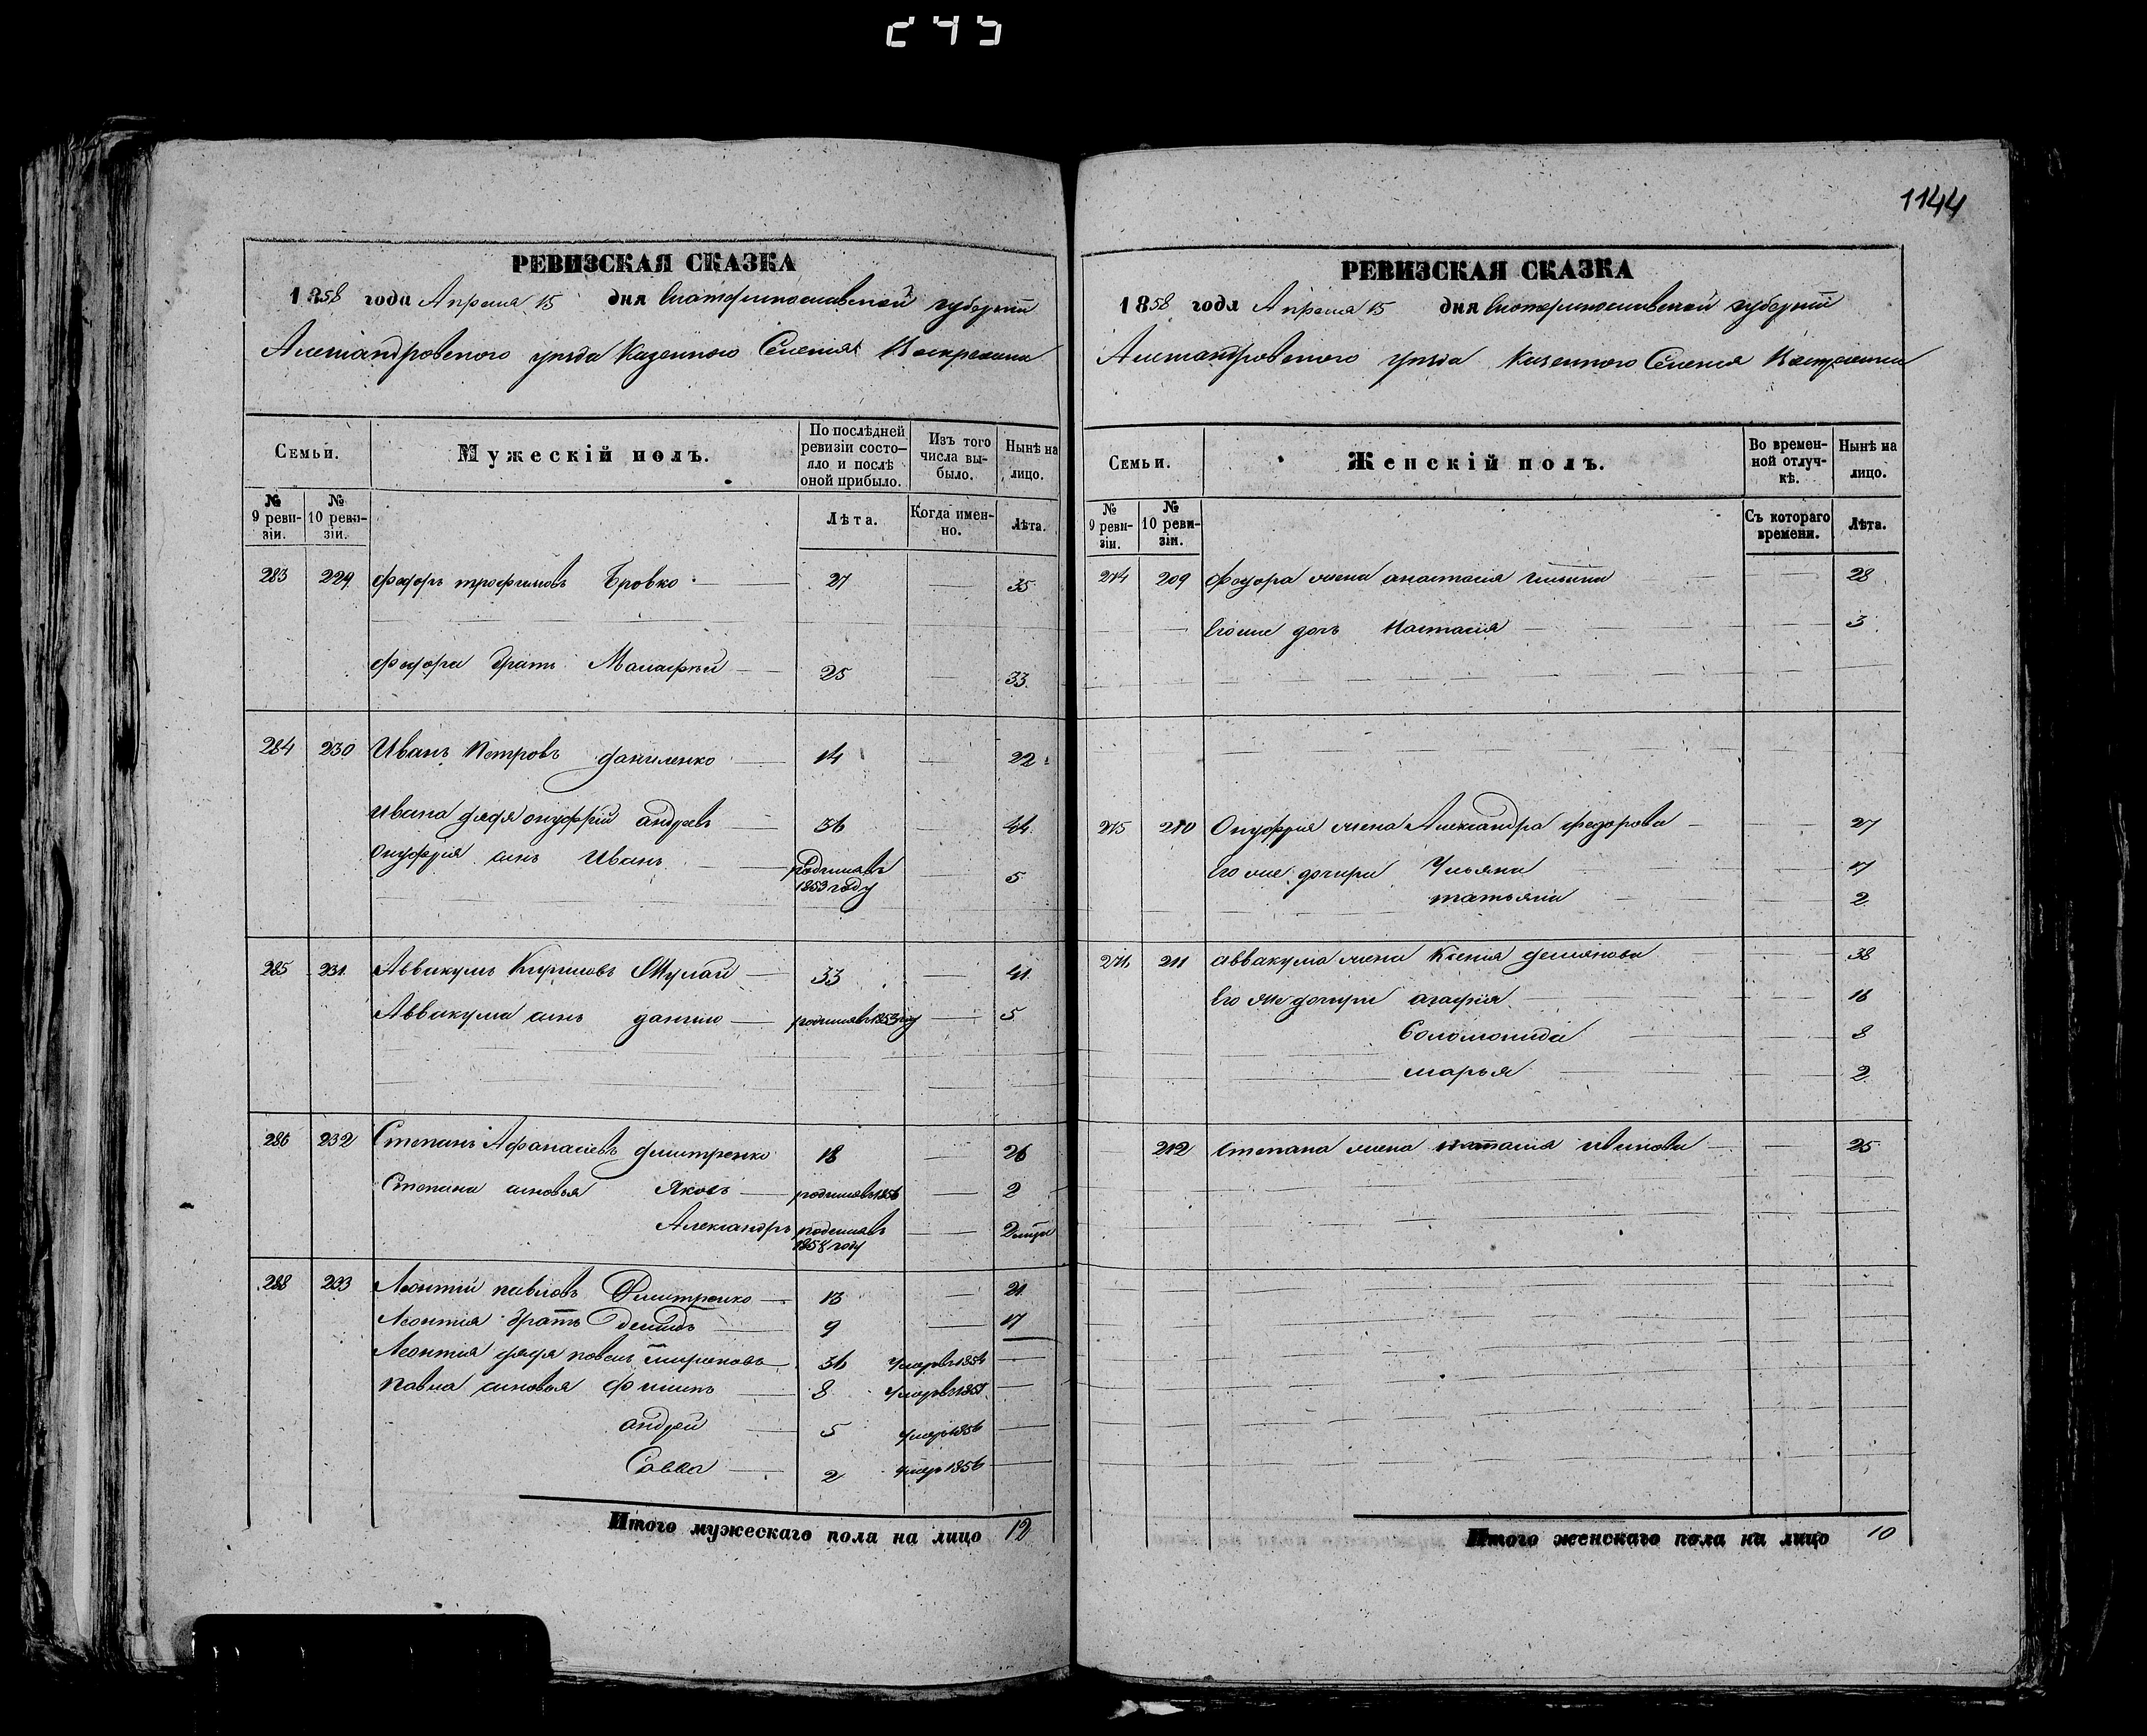 245
1144
РЕВИЗСКАЯ СКАЗКА
1858 года Апреля 15 дня Екатеринославской губернии
Александровского уезда Казенного Селения Воскресенки
Семьи.
Мужескій полъ.
По послѣдней ревизіи состояло и послѣ оной прибыло.
Изъ того числа выбыло.
Нынѣ на лицо.
№ 9 ревизіи.
№ 10 ревизіи.
Лѣта.
Когда именно.
Лѣта.
283 229 Федоръ трофимовъ Бровко 27 35
Федора братъ Малафей 25 33
284 230 Иванъ Петровъ даниленко 14 22
Ивана дядя онуфрій андреевъ 36 44
Онуфрія сынъ Иванъ родился въ 1853 году 5
285 231 Аввакумъ Кириловъ 33 41
Аввакума сынъ данило родился въ 1853 году 5
286 232 Степанъ Афанасіевъ дмитренко 18 26
Степана сыновья Яковъ родился въ 1856 2
Александръ родился въ 1858 году
288 233 Леонтій павловъ Дмитренко 13 21
Леонтія братъ демидъ 9 17
Леонтія дядя павелъ 36 умеръ 1854
Павла сыновья Филипъ 8 умеръ
андрей 5 умеръ 1856
Савва 2 умеръ 1856
Итого мужескаго пола на лицо 12
РЕВИЗСКАЯ СКАЗКА
1858 года Апреля 15 дня Екатеринославской губернии
Александровского уезда Казенного Селения Воскресенки
Семьи.
Женскій полъ.
Во временной отлучкѣ.
Нынѣ на лицо.
№ 9 ревизіи.
№ 10 ревизіи.
Съ котораго времени.
Лѣта.
274 209 Федора жена анастасія 28
Его же дочь Настасія 3
275 210 Онуфрія жена Александра федорова 27
Его же дочери Ульяна 17
татьяна 2
211 аввакума жена Ксенія демянова 38
Его же дочери агафія 16
Соломонида 8
марья 2
212 степана жена иванова 25
Итого женскаго пола на лицо 10